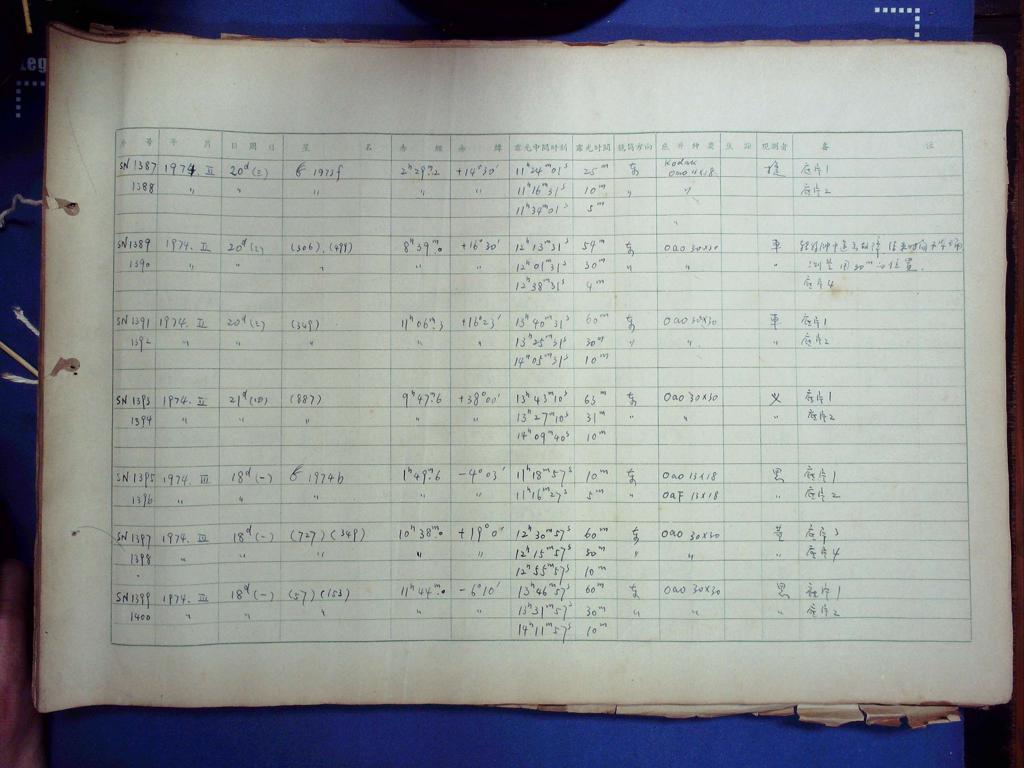 leg
片 号 年 月 日 周 日 星 名 赤 經 赤 緯 露光中間时刻 露光时間 鏡筒方向 底片种类 观測者 备 注
SN 1387 1974. II 20d (三) 1973f 2h 29m.2 +14°30' 11h 24m 01s 25m 东 Kodak 底片1
1388 〃 〃 〃 〃 〃 11h 16m 31s 10m 〃 〃 底片2
11h 34m 01s 5m
〃
SN 1389 1974. II 20d (三) (306), (499) 8h 39m.0 +16°30' 12h 13m 31s 59m 东 0a0 30x30 車
1390 〃 〃 〃 〃 〃 12h 01m 31s 30m 〃 〃 〃 测量用30m的位置.
12h 38m 31s 4m 底片4
SN 1391 1974. II 20d (三) (349) 11h 06m.3 +16°23' 13h 40m 31s 60m 东 0a0 30x30 車 底片1
1392 〃 〃 〃 〃 〃 13h 25m 31s 30m 〃 〃 〃 底片2
14h 05m 31s 10m
SN 1393 1974. II 21d (四) (887) 9h 47m.6 +38°00' 13h 43m 10s 63m 东 0a0 30x30 义 底片1
1394 〃 〃 〃 〃 〃 13h 27m 10s 31m 〃 〃 底片2
14h 09m 40s 10m
SN 1395 1974. III 18d (一) 1974b 1h 49m.6 -4°03' 11h 18m 57s 10m 东 0a0 13x18 底片1
1396 〃 〃 〃 〃 〃 11h 16m 27s 5m 〃 0aF 13x18 〃 底片2
SN 1397 1974. III 18d (一) (727) (349) 10h 38m.0 +19°0' 12h 30m 57s 60m 东 0a0 30x30 底片3
1398 〃 〃 〃 〃 〃 12h 15m 57s 30m 〃 〃 〃 底片4
12h 55m 57s 10m
SN 1399 1974. III 18d (一) (57) (153) 11h 44m.0 -6°10' 13h 46m 57s 60m 东 0a0 30x30 底片1
1400 〃 〃 〃 〃 〃 13h 31m 57s 30m 〃 〃 〃 底片2
14h 11m 57s 10m